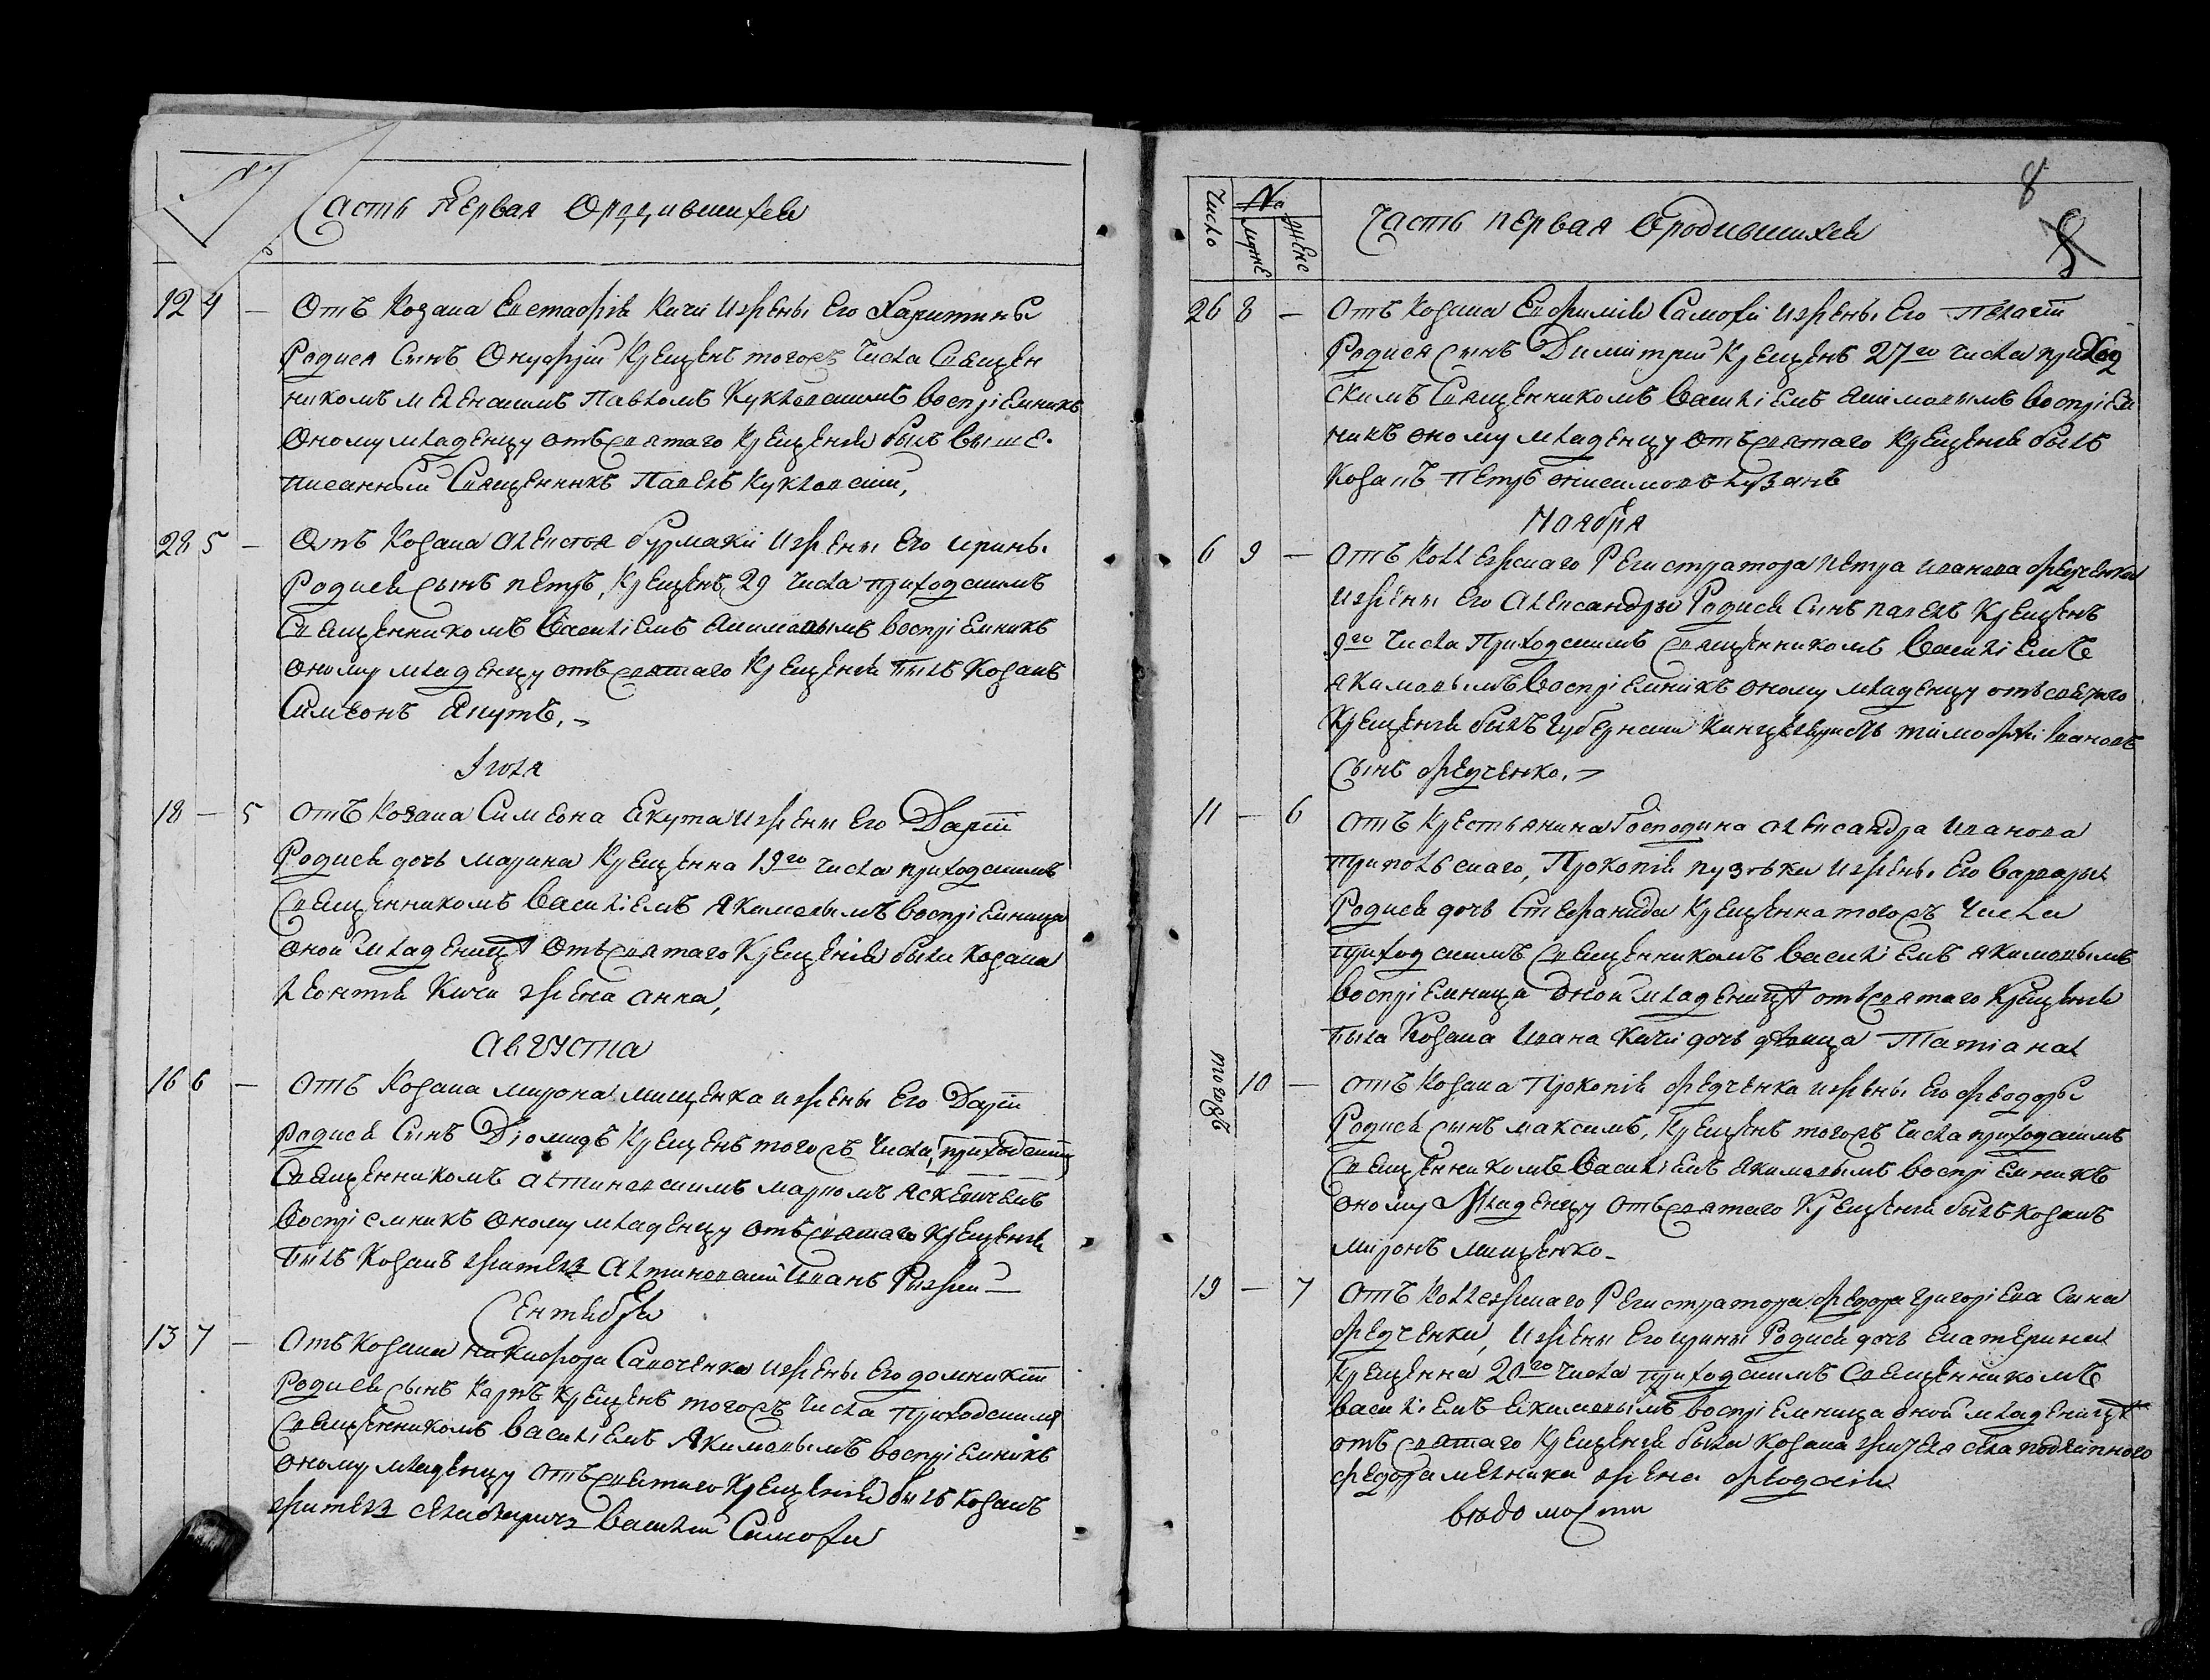 Часть первая Ородившихся
12 4 — Отъ Козака Евстафія Кичи ижены Его Харитины
Родися Сынъ Онуфрій Крещенъ тогожъ Числа Священ
никомъ Павломъ Кукловскимъ воспріемникъ
Оному младенцу отъ святаго Крещенія былъ выше
писанный Священникъ Павелъ Кукловскій,
28 5 — Отъ Козака Алексѣя бурмаки ижены Его ирины
Родися сынъ петръ, Крещенъ 29 числа приходскимъ
Священникомъ Василіемъ Якимовымъ воспріемникъ
оному младенцу отъ святаго Крещенія былъ Козакъ
Симеонъ Якутъ.
Іюля
18 — 5 Отъ Козака Симеона Екута ижены Его Даріи
Родися дочь марина Крещенна 19го числа приходскимъ
Священникомъ Василіемъ Якимовымъ воспріемница
оной младеницѣ Отъ святаго Крещенія была Козака
леонтія Кичи жена анна,
Августа
16 6 — Отъ Козака мирона мищенка ижены Его Даріи
родися Сынъ Діомидъ Крещенъ тогожъ Числа,
Священникомъ маркомъ
воспріемникъ Оному младенцу отъ святаго Крещенія
былъ Козакъ житель Иванъ
Сентября
13 7 — Отъ Козака никифора Савченка ижены Его домникіи
Родися сынъ Карпъ Крещенъ тогожъ числа Приходскимъ
священникомъ василіемъ Якимовымъ воспріемникъ
оному младенцу отъ святаго Крещенія былъ козакъ
житель василій Самохи
8
Число № муже женс Часть первая Ородившихся
26 8 — Отъ Козака Евфимія Самохи ижены Его Пелагіи
Родися сынъ Димитрій Крещенъ 27го числа приход
скимъ Священникомъ василіемъ Якимовымъ воспріем
никъ оному младенцу отъ святаго крещенія былъ
Козакъ Петръ онисимовъ
Ноября
6 9 — Отъ Коллежскаго Регистратора петра иванова федченка
ижены Его Александры Родися Сынъ павелъ Крещенъ
9го числа Приходскимъ священникомъ василіемъ
якимовымъ воспріемникъ оному младенцу отъ святаго
Крещенія былъ Губернскій Канцеляристъ тимофѣй ивановъ
сынъ федченко.
11 — 6 Отъ Крестьянина Господина Александра иванова
трипольскаго, Прокопія пузька ижены Его варвары
Родися дочь Стефанида Крещенна тогожъ Числа
приходскимъ священникомъ василіемъ якимовымъ
воспріемница оной младеницѣ отъ святаго Крещенія
была Козака Ивана Кичи дочь дѣвица Татіана
тогожъ 10 — Отъ Козака Прокопія федченка ижены Его феодоры
Родися сынъ максимъ, Крещенъ тогожъ числа приходскимъ
священникомъ василіемъ якимовымъ воспріемникъ
оному младенцу отъ святаго Крещенія былъ козакъ
миронъ мищенко
19 — 7 Отъ Коллежскаго Регистратора федора григоріева Сына
федченки, ижены Его ирины Родися дочь екатерина
крещенна 20го числа приходскимъ священникомъ
василіемъ Екимовымъ воспріемница оной младеницѣ
отъ святаго Крещенія была козака жителя села
федора мелника жена феодосія
вѣдомости